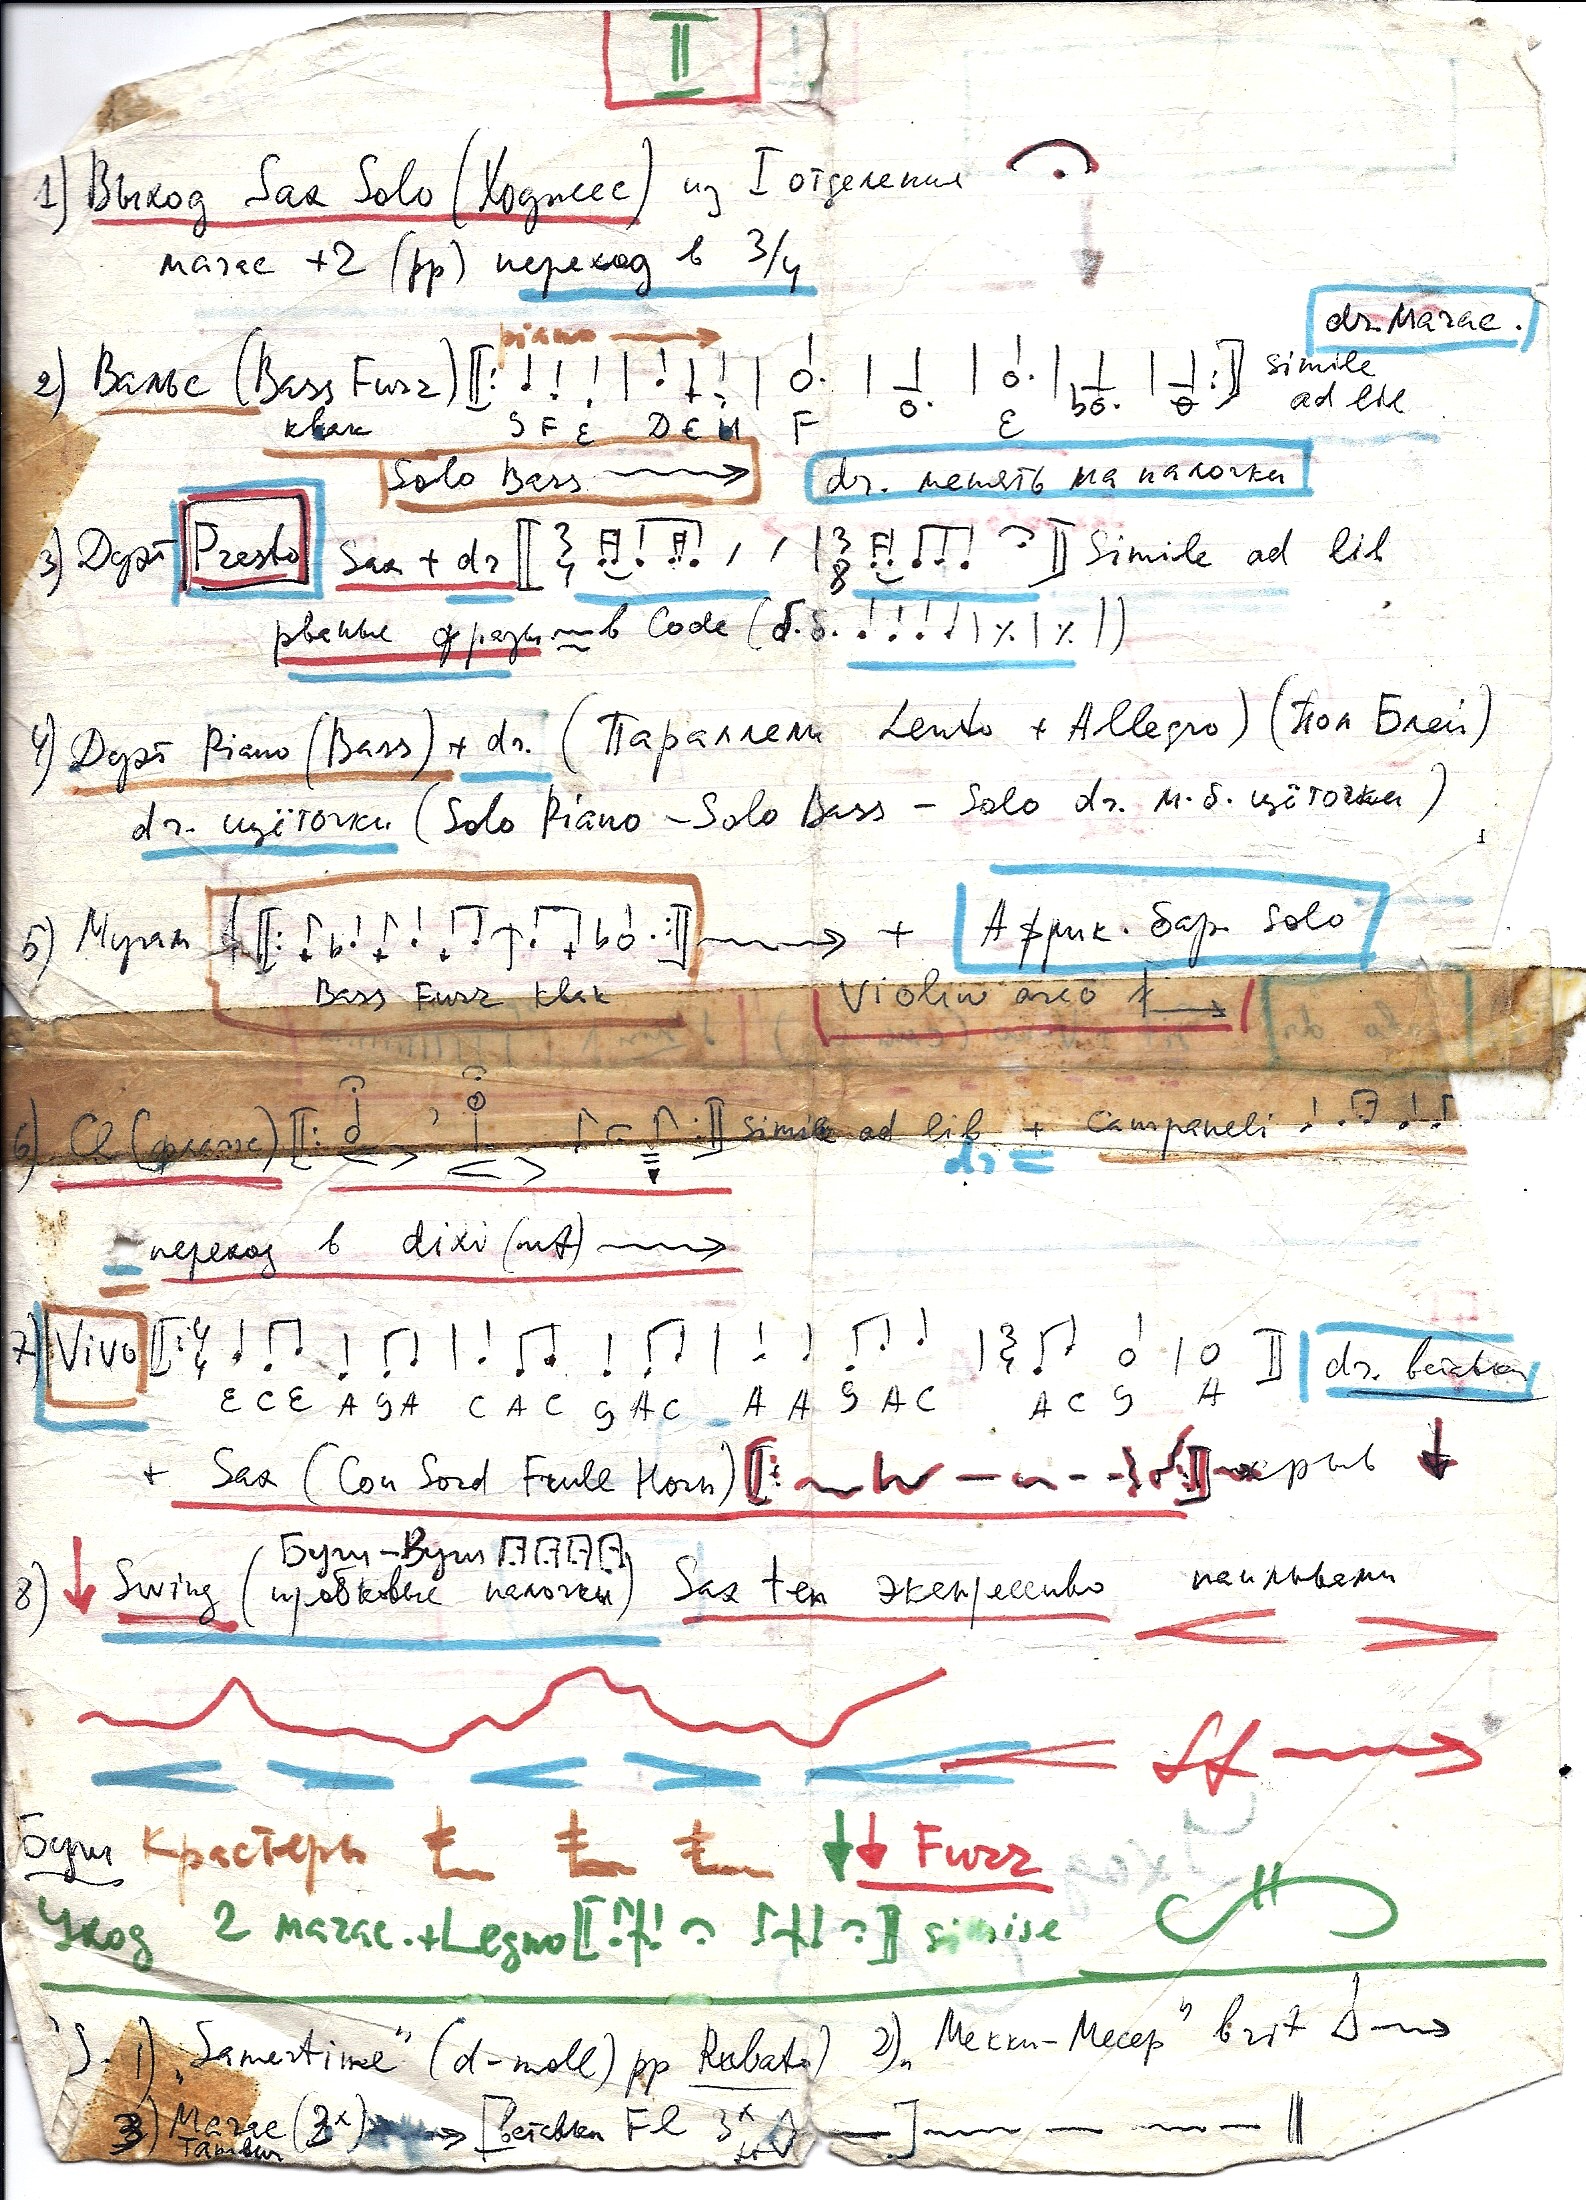 II
1) Выход Sax Solo (Ходжес) из I отделения
марас +2 (pp) переход в 3/4
dr. Марас.
piano
2) Вальс (Bass Fuzz) simile
ad lib
квак G F E D E F E
Solo Bass dr. менять на палочки
3) Дуэт Presto Sax + dr 3/4 3/8 Simile ad lib
рваные фразы в Code (б.б. | ٪ | ٪ |)
4) Дуэт Piano (Bass) + dr. (Параллели Lento + Allegro) (Пол Блей)
dr. щёточки (Solo Piano - Solo Bass - Solo dr. м.б. щёточки)
5) Мугам + Африк. бар. Solo
Bass Fuzz квак Violin arco
6) Cl (фраже) simile ad lib + Campaneli
dr
переход в dixi (mf)
7) Vivo 4/4 3/4 dr. вставки
E C E A G A C A C G A C A A G A C A C G A
+ Sax (Con Sord Frull Horn)
8) Swing (Буги-Вуги
пробковые палочки) Sax ten экспрессиво наплывами
ff
Буги Кластеры Fuzz
Уход 2 марас. + Legno simise
1) „Samertime" (d-moll) pp Rubato) 2) „Мекки-Месер"
3) Марас (3x) [вставки Fl 3x ]
Тамбур